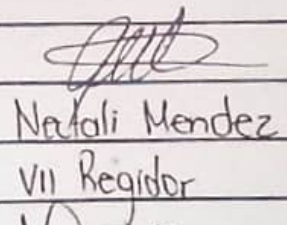 Natali Mendez
VII Regidor